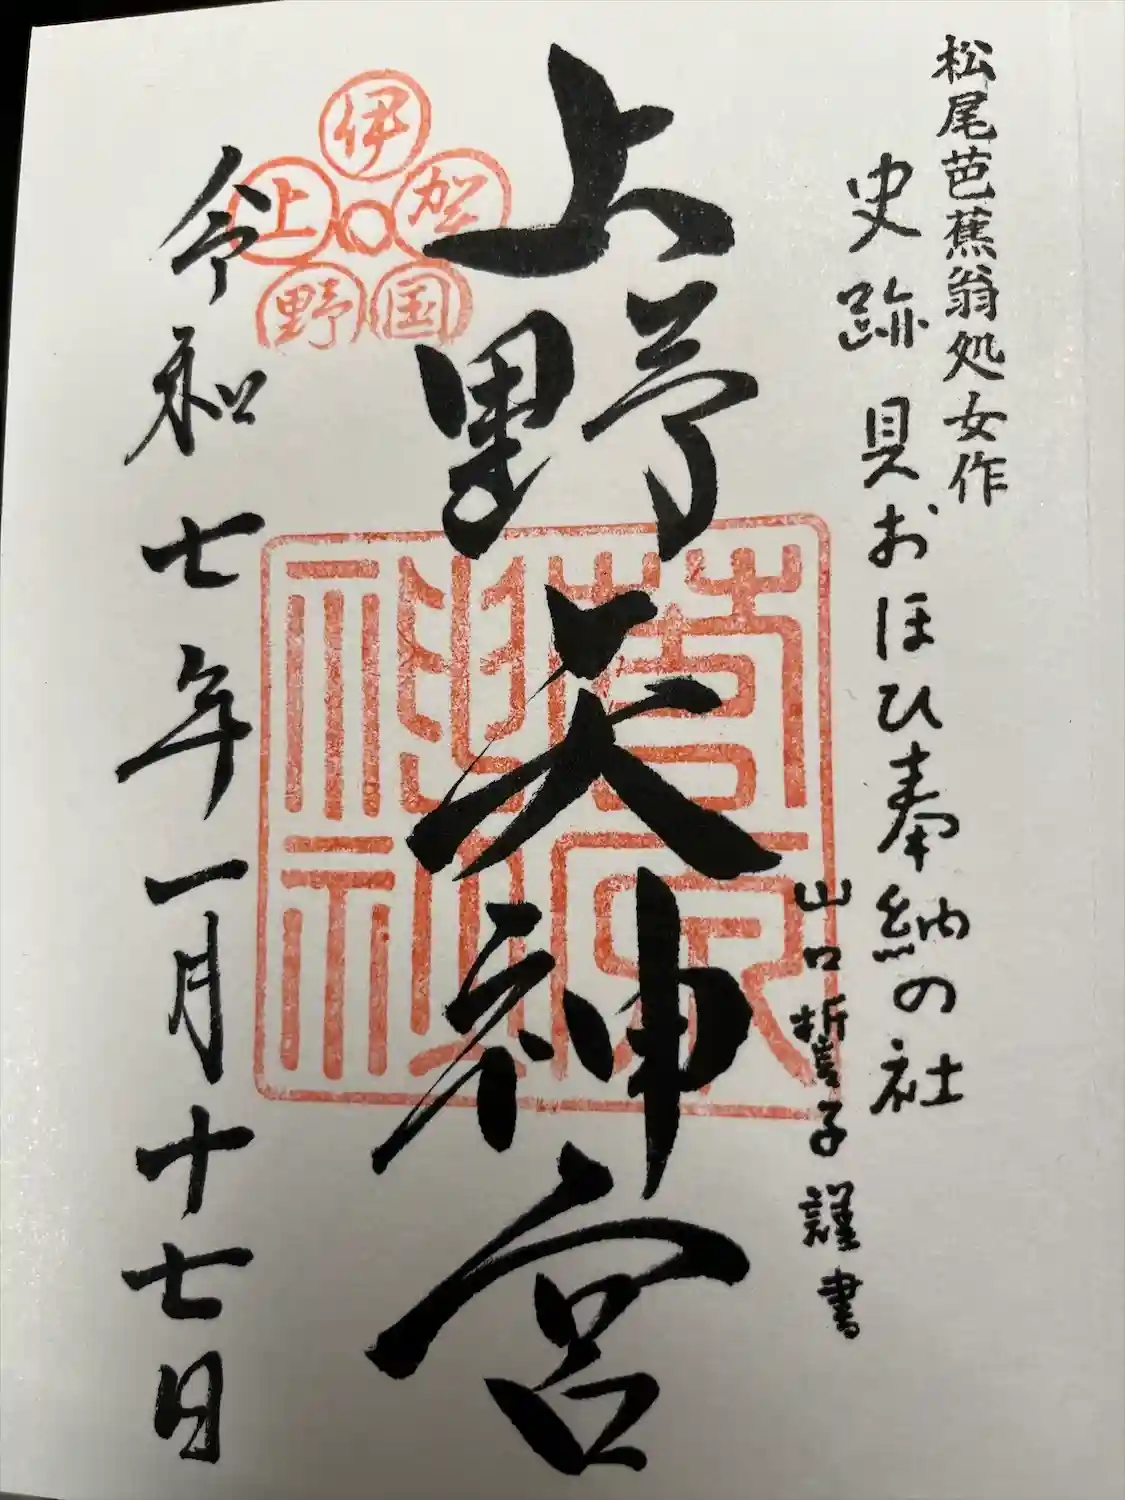 松尾芭蕉翁処女作
史跡 貝おほひ奉納の社
山口誓子 謹書
上野天神宮
伊賀国上野
菅原神社
令和七年一月十七日